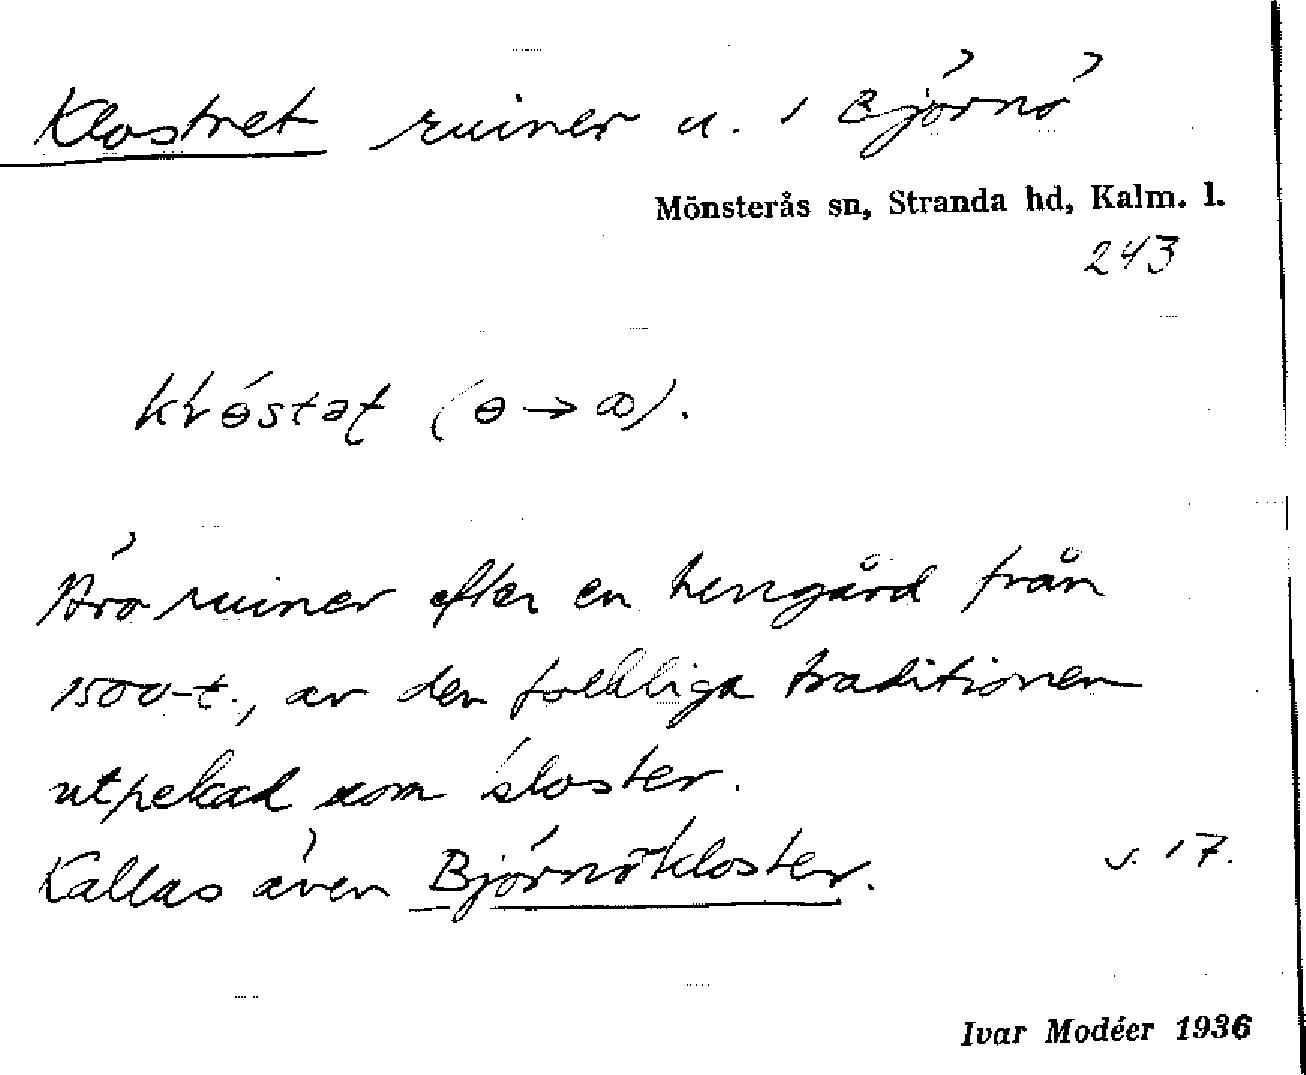 Klostret ruiner u. 1 Björnö
Mönsterås sn, Stranda hd, Kalm. l.
243
(ɵ → ꝏ).
Äro ruiner efter en herrgård från
1500-t., av den folkliga traditionen
utpekad som kloster.
Kallas även Björnökloster.
s. 17.
Ivar Modéer 1936